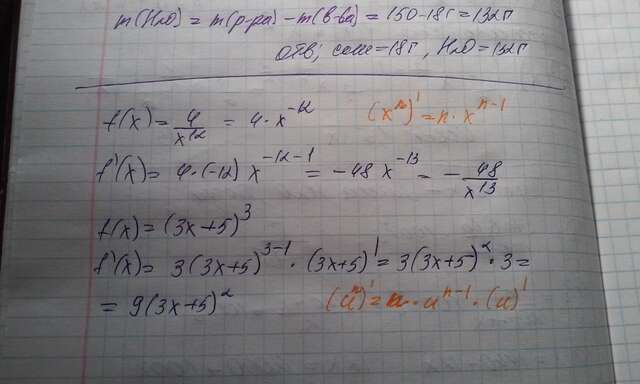 m(H₂O) = m(р-ра) - m(в-ва) = 150 - 18г = 132г
отв; соли = 18г, H₂O = 132г
f(x) = 4/x¹² = 4 · x⁻¹² (xⁿ)' = n · xⁿ⁻¹
f'(x) = 4 · (-12) x⁻¹²⁻¹ = -48 x⁻¹³ = - 48/x¹³
f(x) = (3x+5)³
f'(x) = 3(3x+5)³⁻¹ · (3x+5)' = 3(3x+5)² · 3 =
= 9(3x+5)² (uⁿ)' = n · uⁿ⁻¹ · (u)'